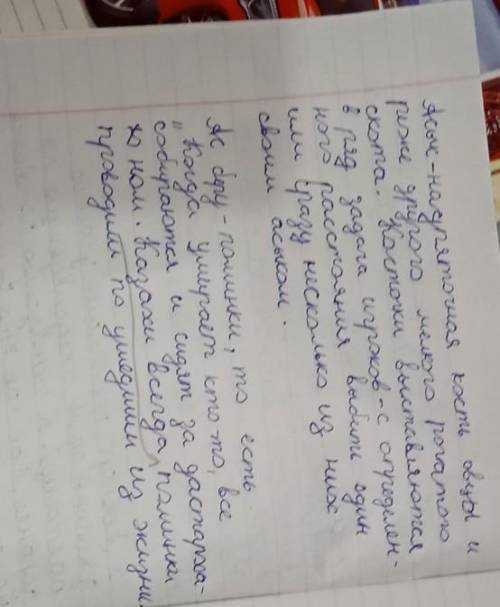 Асык - надпяточная кость овцы и
реже другого мелкого рогатого
скота. Косточки выставляются
в ряд задача игроков - с определен-
ного расстояния выбить один
или сразу несколько из них
своим асыком.
Ас беру - поминки, то есть
"Когда умирает кто то, все
собираются и сидят за дастарха-
ном. Казахи всегда поминки
проводили по ушедшим из жизни.